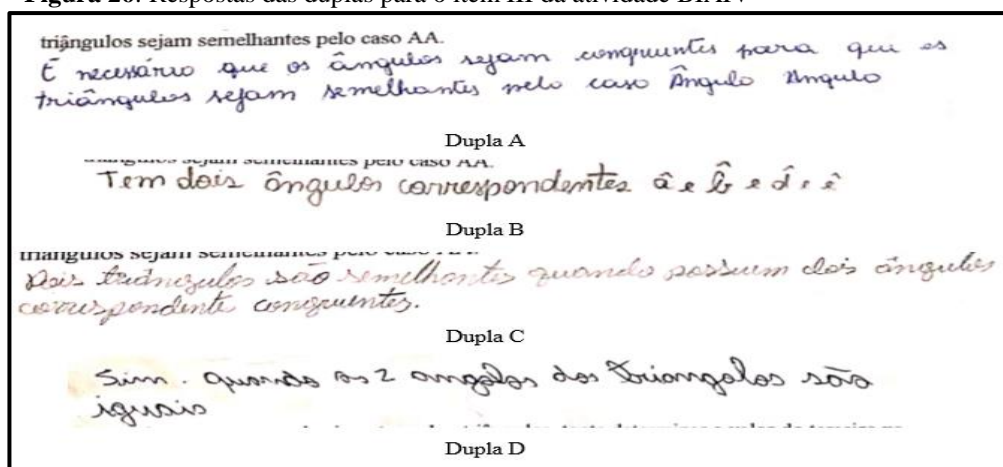 Figura 20: Respostas das duplas para o item III da atividade
triângulos sejam semelhantes pelo caso AA.
É necessário que os ângulos sejam congruentes para que os
triângulos sejam semelhantes pelo caso Ângulo Angulo
Dupla A
triângulos sejam semelhantes pelo caso AA.
Tem dois ângulos correspondentes â e b̂ e d̂ e ê
Dupla B
triângulos sejam semelhantes pelo caso
Dois triângulos são semelhantes quando possuem dois ângulos
correspondente congruentes.
Dupla C
Sim. quando os 2 angolos dos triangolos são
iguais
Dupla D